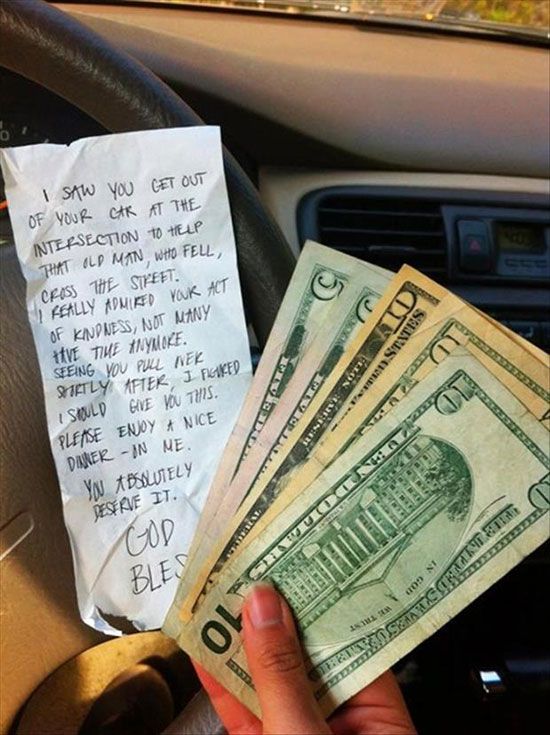 I SAW YOU GET OUT
OF YOUR CAR AT THE
INTERSECTION TO HELP
THAT OLD MAN, WHO FELL,
CROSS THE STREET.
I REALLY ADMIRED YOUR ACT
OF KINDNESS, NOT MANY
HAVE TIME ANYMORE.
SEEING YOU PULL OVER
SHORTLY AFTER, I FIGURED
I SHOULD GIVE YOU THIS.
PLEASE ENJOY A NICE
DINNER - ON ME.
YOU ABSOLUTELY
DESERVE IT.
GOD
BLES
5
10
RESERVE NOTE
10
10
IN GOD
WE TRUST
THE UNITED STATES OF AMERICA
10